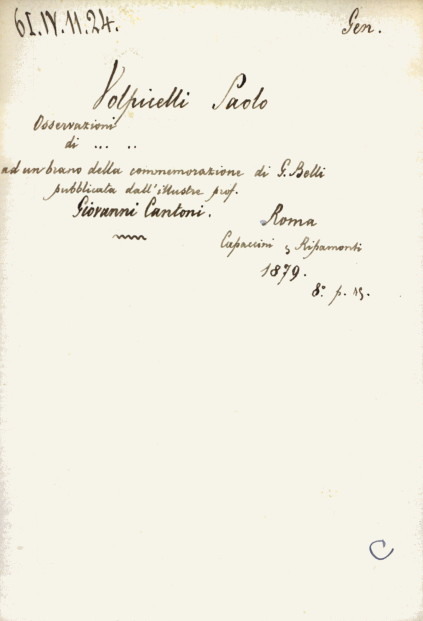 61.IV.11.24.
Gen.
Volpicelli Paolo
Osservazioni
di ... ..
ad un brano della commemorazione di G. Belli
pubblicata dall'illustre prof.
Giovanni Cantoni.
Roma
Capaccini e Ripamonti
1879.
8º p.
C